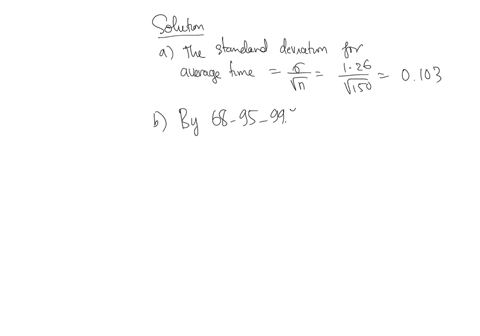 Solution
a) The standard deviation for
average time = σ/√n = 1.26/√150 = 0.103
b) By 68-95-99.